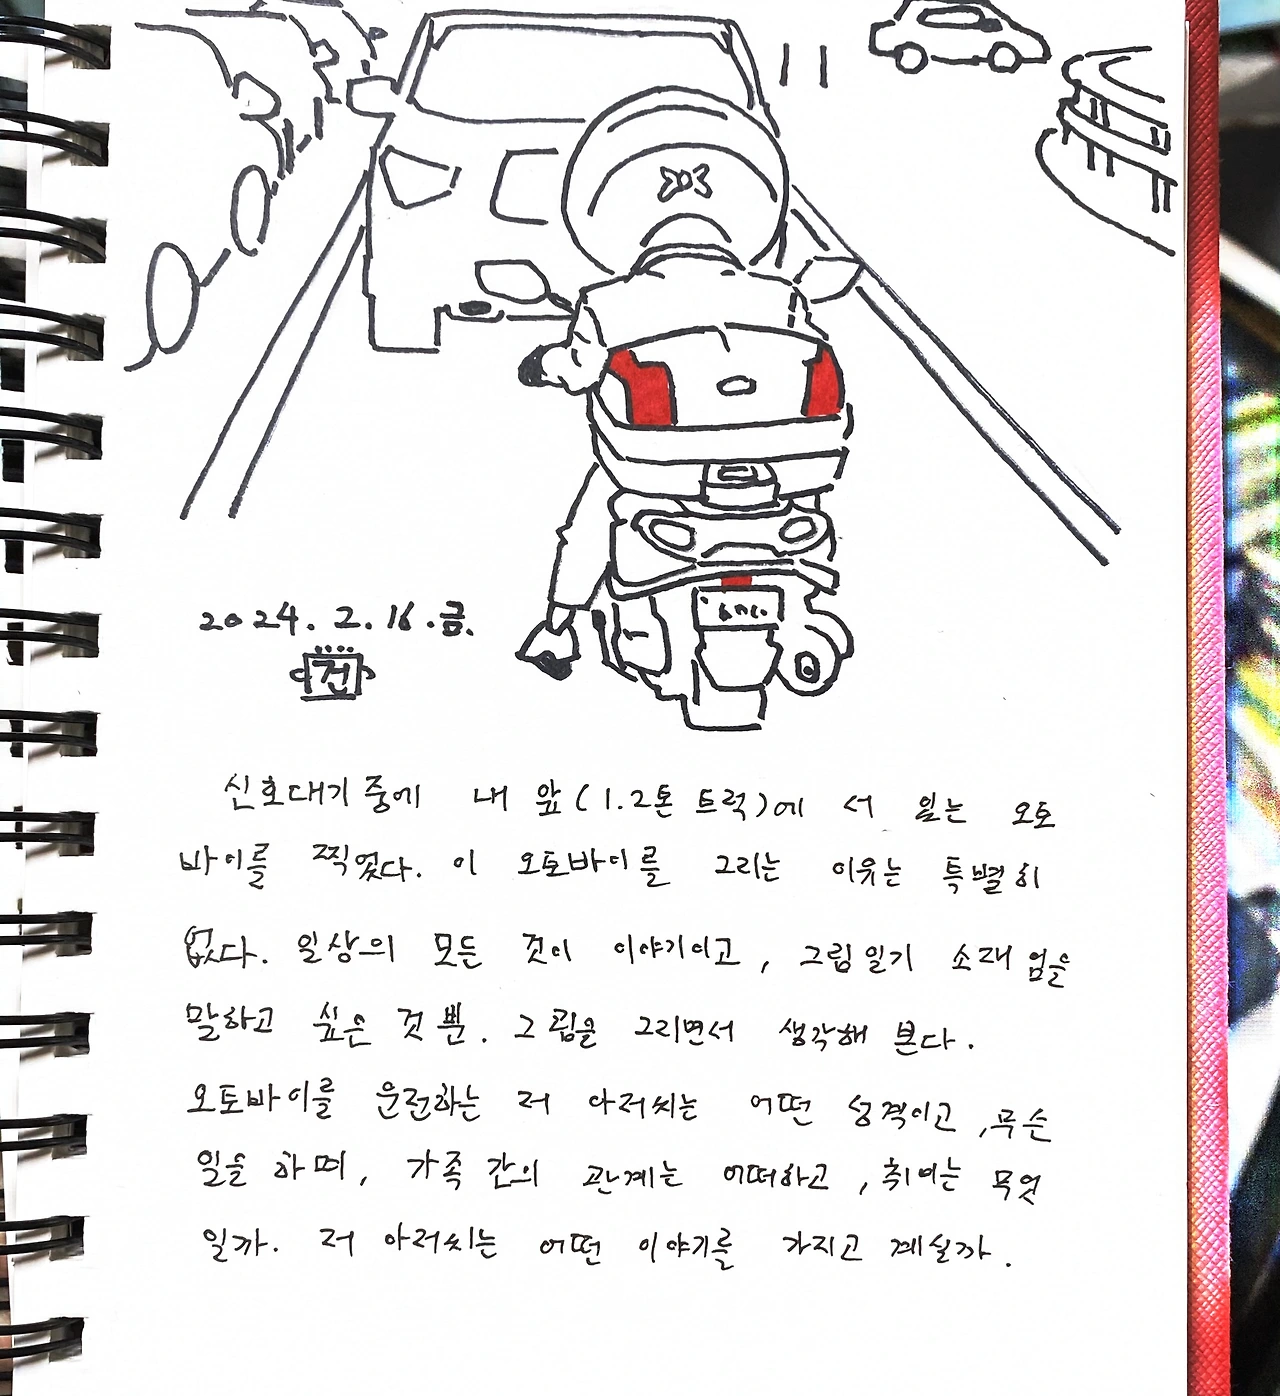 2024. 2. 16. 금.
건
신호대기 중에 내 앞(1.2톤 트럭)에 서 있는 오토
바이를 찍었다. 이 오토바이를 그리는 이유는 특별히
없다. 일상의 모든 것이 이야기이고, 그림일기 소재 임을
말하고 싶은 것 뿐. 그림을 그리면서 생각해 본다.
오토바이를 운전하는 저 아저씨는 어떤 성격이고, 무슨
일을 하며, 가족 간의 관계는 어떠하고, 취미는 무엇
일까. 저 아저씨는 어떤 이야기를 가지고 계실까.